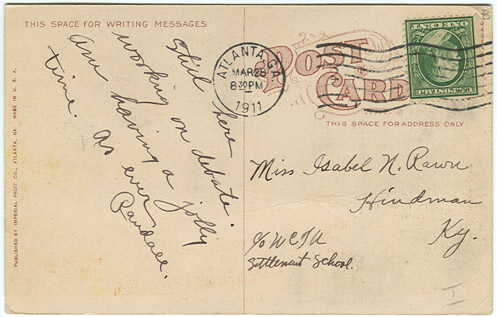 THIS SPACE FOR WRITING MESSAGES
Still here
working on debate.
am having a jolly
time. As ever
Randall.
PUBLISHED BY IMPERIAL FRUIT CO., ATLANTA, GA. MADE IN U.S.A.
ATLANTA, GA.
MAR 28
8 30 PM
1911
POST
CARD
THIS SPACE FOR ADDRESS ONLY
Miss Isabel N. Rawn
Hindman
Ky.
c/o W C T U
Settlement School.
I